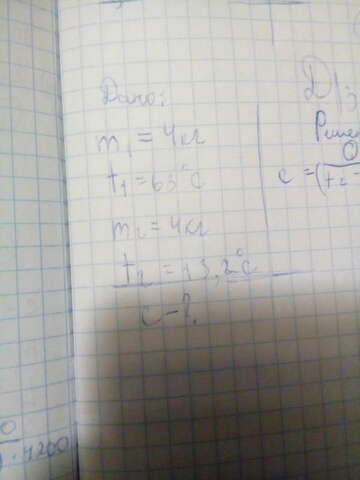 Дано:
m₁ = 4кг
t₁ = 63°С
m₂ = 4кг
t₂ = 13,2°С
с - ?
Д/з
Решен
с = (Q
t₂ -
0
) · 4200